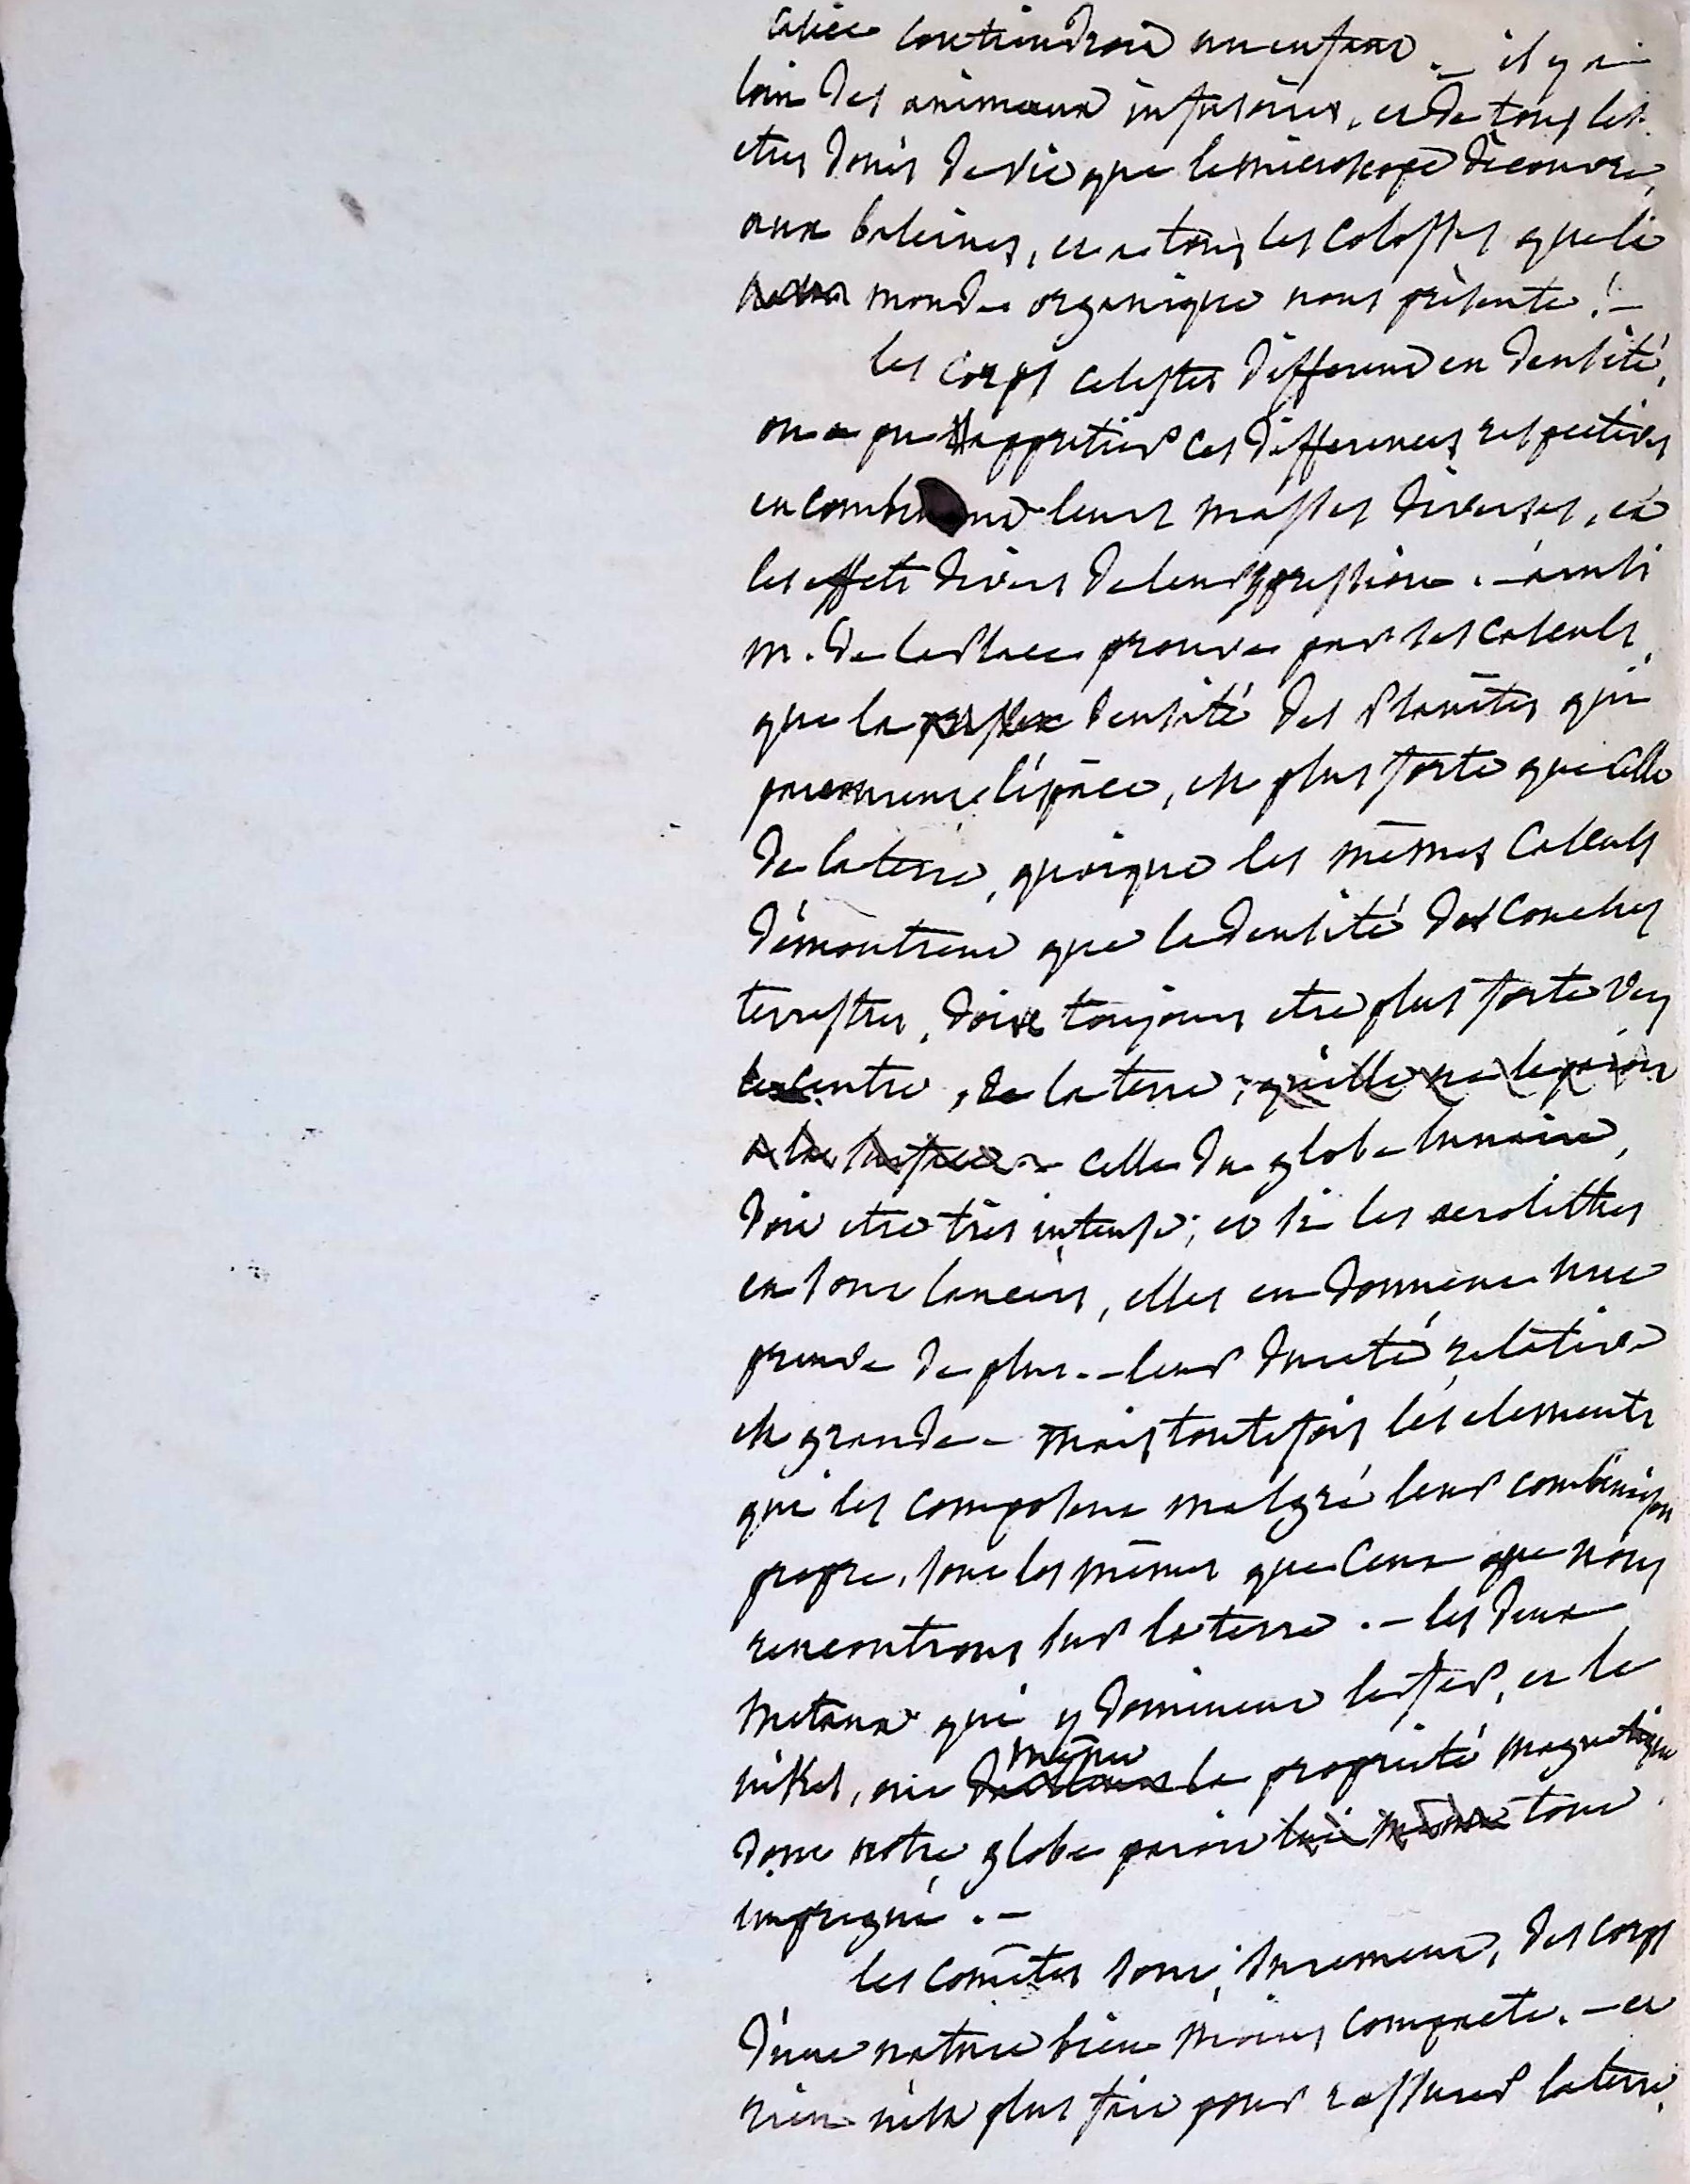 contiendroit un enfant. — il y a
loin des animaux infusoires, et de tous les
etres doués de vie que le microscope découvre,
aux baleines, et a tous les colosses que le
monde organique nous présente ! —
les corps celestes different en densité,
on a pu appretier ces differences respectives
en combinant leurs masses diverses, et
les effets divers de leur pression. — ainsi
m. de la Place prouve par ses calculs,
que la densité des Planètes qui
parcourent l'éspace, est plus forte que celle
de la terre, quoique les mêmes calculs
démontrent que la densité des couches
terrestres, doit toujours etre plus forte vers
le centre, de la terre ; qu'elle ne le paroit
a la surface. — celle du globe lunaire,
doit etre très intense ; et si les aerolithes
en sont lancées, elles en donnent une
preuve de plus. — leur dureté relative
est grande — mais toutefois les elements
qui les composent malgré leur combinaison
propre, sont les mêmes que ceux que nous
rencontrons sur la terre. — les deux
metaux qui y dominent le fer, et le
nikel, ont même la propriété magnetique
dont notre globe paroit lui même tout
impregné. —
les comètes sont, surement, des corps
d'une nature bien moins compacte. — et
rien n'est plus fait pour rassurer la terre,